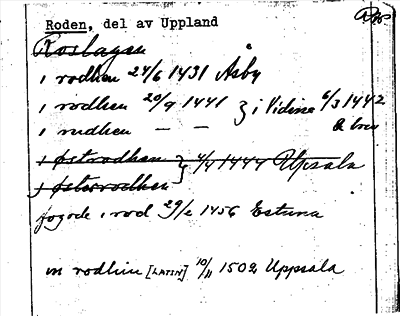 Roden, del av Uppland
Roslagen
i rodhen 24/6 1431 Åsby
i rodhen 20/9 1441 } i Vidisse 6/3 1442
i rudhen — — & brev
i østrodhen } 4/9 1444 Upsala
i østerrodhen
fogode i rod 29/2 1456 Estuna
in rodhin [LATIN] 10/11 1502 Uppsala